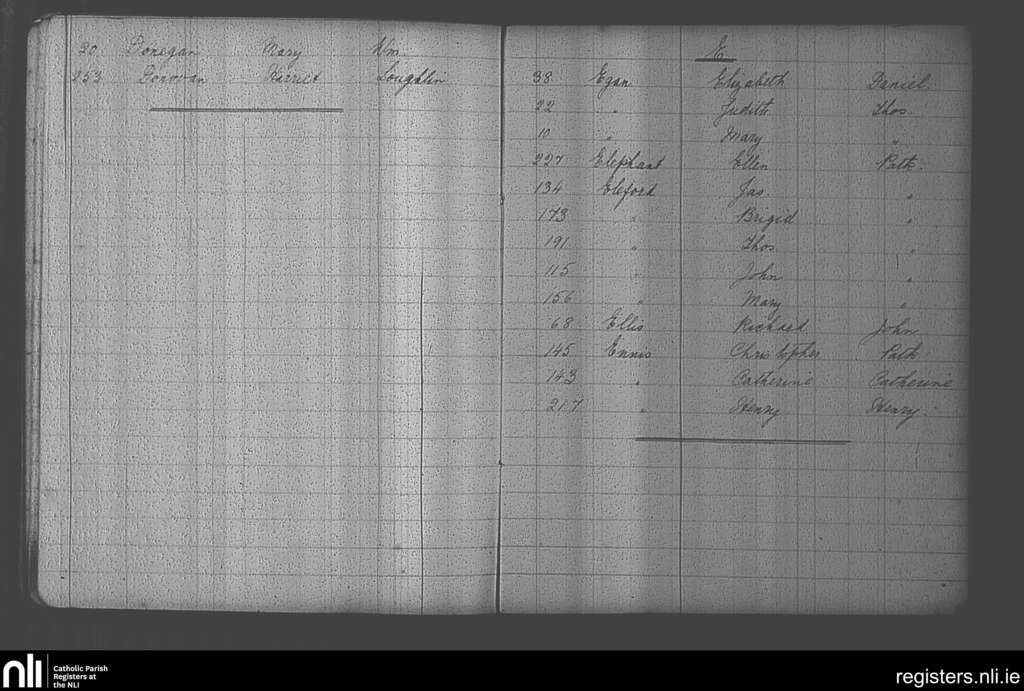 20 Donegan Mary Wm
253 Donovan Harriet Loughlin
E
38 Egan Elizabeth Daniel
22 " Judith Thos.
10 " Mary "
227 Elephant Ellen Patk.
134 Eleford Jas "
173 " Brigid "
191 " Thos "
115 " John "
156 " Mary "
68 Ellis Richard John
145 Ennis Christopher Patk
143 " Catherine Catherine
217 " Henry Henry
nli
Catholic Parish
Registers at
the NLI
registers.nli.ie